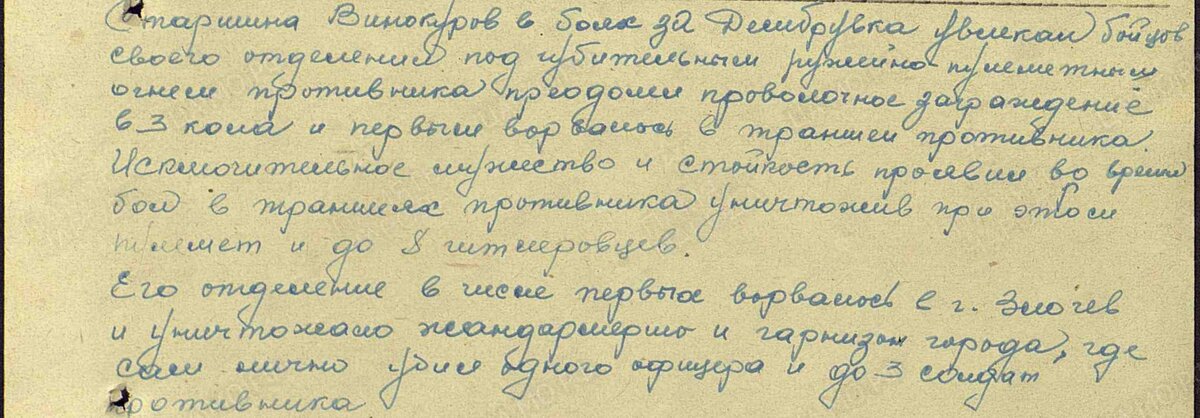 Старшина Винокуров в боях за Дембрувка увлекал бойцов
своего отделения под убительным ружейно-пулеметным
огнем противника преодолел проволочное заграждение
в 3 кола и первым ворвалось в траншеи противника.
Исключительное мужество и стойкость проявил во время
боя в траншеях противника уничтожив при этом
пулемет и до 8 гитлеровцев.
Его отделение в числе первых ворвалось в г. Злочев
и уничтожало жандармерию и гарнизон города, где
сам лично убил одного офицера и до 3 солдат
противника